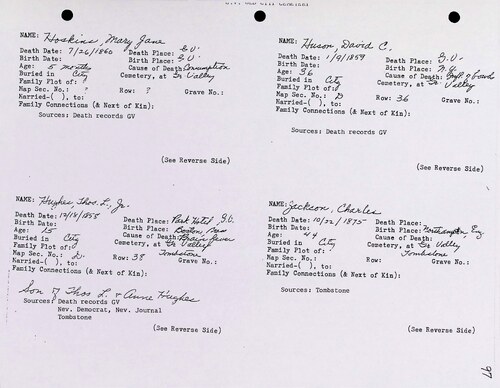 NAME: Hoskins, Mary Jane
Death Date: 7/26/1860 Death Place: G.V.
Birth Date: Birth Place: G.V.
Age: 5 months Cause of Death: Consumption
Buried in City Cemetery, at Gr. Valley
Family Plot of: ?
Map Sec. No.: ? Row: ? Grave No.:
Married-( ), to:
Family Connections (& Next of Kin):
Sources: Death records GV
(See Reverse Side)
NAME: Huson, David C.
Death Date: 1/9/1859 Death Place: G.V.
Birth Date: Birth Place: N.Y.
Age: 36 Cause of Death: of
Buried in City Cemetery, at Gr. Valley
Family Plot of:
Map Sec. No.: D Row: 36 Grave No.:
Married-( ), to:
Family Connections (& Next of Kin):
Sources: Death records GV
(See Reverse Side)
NAME: Hughes, Thos. L., Jr.
Death Date: 10/18/1858 Death Place: Park Hotel, G.V.
Birth Date: Birth Place: Boston, Mass
Age: 15 Cause of Death: Brain fever
Buried in City Cemetery, at Gr. Valley
Family Plot of: Tombstone
Map Sec. No.: D. Row: 38 Grave No.:
Married-( ), to:
Family Connections (& Next of Kin):
Son of Thos L. & Anne Hughes
Sources: Death records GV
Nev. Democrat, Nev. Journal
Tombstone
(See Reverse Side)
NAME: Jackson, Charles
Death Date: 10/22/1875 Death Place:
Birth Date: Birth Place: Northampton, Eng
Age: 44 Cause of Death:
Buried in City Cemetery, at Gr. Valley
Family Plot of: Tombstone
Map Sec. No.: Row: Grave No.:
Married-( ), to:
Family Connections (& Next of Kin):
Sources: Tombstone
(See Reverse Side)
97